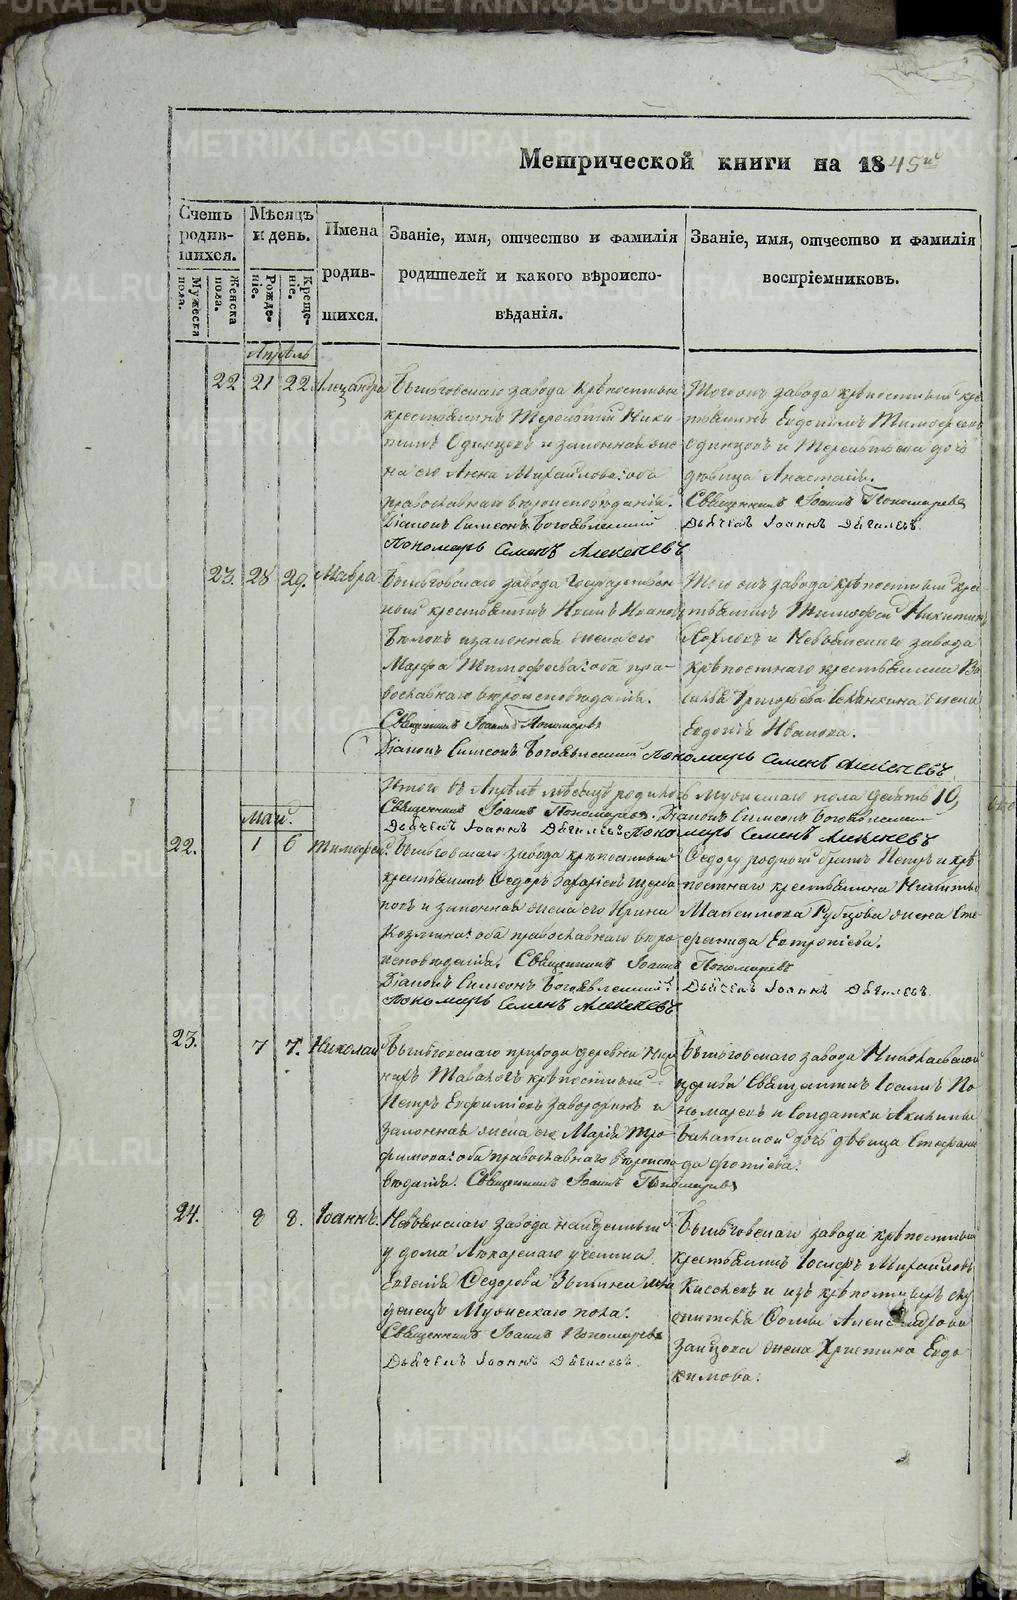 METRIKI.GASO-URAL.RU
Метрической книги на 1845й
Счетъ родив- шихся.
Мѣсяцъ и день.
Имена родив- шихся.
Званіе, имя, отчество и фамилія
родителей и какого вѣроиспо-
вѣданія.
Званіе, имя, отчество и фамилія
воспріемниковъ.
Мужеска пола.
Женска пола.
Рожде- ніе.
Креще- ніе.
Апрѣль
22 21 22 Александра
завода крѣпостный
крестьянинъ Терентій Ники
тинъ Одинцовъ и законная же
на его Анна Михайлова: оба
православнаго вѣроисповѣданія.
Діаконъ Симеонъ Богоявленскій
Пономарь Семенъ Алексѣевъ
Тогожъ завода крѣпостный кре
стьянинъ Евдокимъ Тимофѣевъ
Одинцовъ и Терентьева дочь
дѣвица Анастасія.
Священникъ Іоаннъ Пономаревъ
Дьячекъ Іоаннъ Дягилевъ.
23. 28 29. Мавра
завода Государствен
ный крестьянинъ Иванъ Ивановъ
и законная жена его
Марфа Тимофѣева: оба пра-
вославнаго вѣроисповѣданія.
Священникъ Іоаннъ Пономаревъ
Діаконъ Симеонъ Богоявленскій Пономарь Семенъ Алексѣевъ
Тогожъ завода крѣпостный крес
тьянинъ Тимофей Никитинъ
и Невьянскаго завода
крѣпостнаго крестьянина Ва
силья Григорьева жена
Евдокія Иванова.
Итого въ Апрѣлѣ мѣсяцѣ родилось Мужескаго пола девять 10,
Священникъ Іоаннъ Пономаревъ. Діаконъ Симеонъ Богоявленскій
Дьячекъ Іоаннъ Дягилевъ Пономарь Семенъ Алексѣевъ
Май.
22. 1 6 Тимофей.
завода крѣпостный
крестьянинъ Ѳедоръ Захаровъ Щерба
ковъ и законная жена его Ирина
Козмина: оба православнаго вѣро
исповѣданія. Священникъ Іоаннъ Пономаревъ
Діаконъ Симеонъ Богоявленскій
Пономарь Семенъ Алексѣевъ
Ѳедору родной братъ Петръ и крѣ
постнаго крестьянина Никиты
Максимова Рубцова жена Сте
фанида Евтропіева.
Дьячекъ Іоаннъ Дягилевъ.
23. 7 7. Николай
прихода деревни
Таваловъ крѣпостный
Петръ Евфиміевъ Заворохинъ и
законная жена его Марія Тро-
фимова: оба православнаго вѣроиспо
вѣданія. Священникъ Іоаннъ Пономаревъ
завода Николаевской
церкви Священникъ Іоаннъ По
номаревъ и Солдатки Акилины
дочь дѣвица Стефани
да Фотіева.
24. 8 8. Іоаннъ.
Невьянскаго завода найденный
у дома Лекарскаго ученика
Евгенія Ѳедорова мла
денецъ Мужескаго пола.
Священникъ Іоаннъ Пономаревъ
Дьячекъ Іоаннъ Дягилевъ.
завода крѣпостный
крестьянинъ Іосифъ Михайловъ
Киселевъ и изъ крѣпостныхъ слу
жителя Ѳомы Александрова
Заицова жена Христина Евдо
кимова.